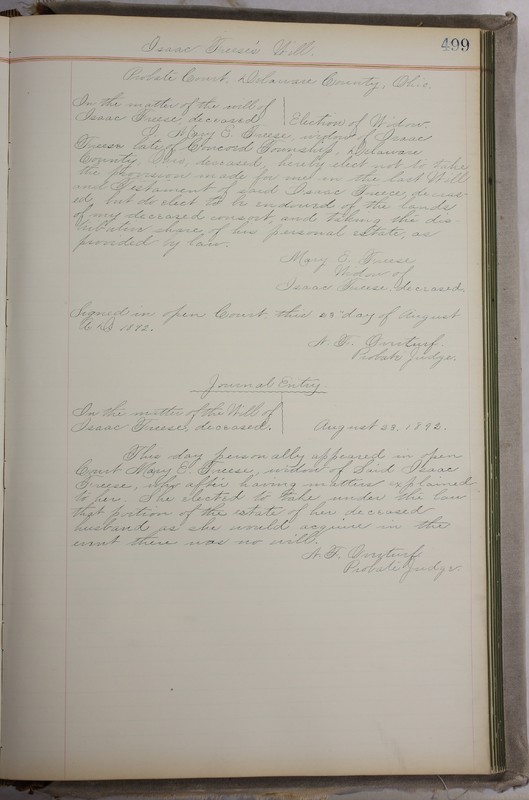 Isaac Freese's Will.
499
Probate Court, Delaware County, Ohio.
In the matter of the will of
Isaac Freese, deceased. Election of Widow.
I, Mary E. Freese, widow of Isaac
Freese late of Concord Township, Delaware
County Ohio, deceased, hereby elect not to take
the provision made for me in the last Will
and Testament of said Isaac Freese, deceas-
ed, but do elect to be endowed of the lands
of my deceased consort, and taking the dis-
tributive share of his personal estate, as
provided by law.
Mary E. Freese
Widow of
Isaac Freese, deceased.
Signed in open Court this 23" day of August
A.D. 1892.
N. F. Overturf
Probate Judge.
Journal Entry
In the matter of the Will of
Isaac Freese, deceased. August 23, 1892.
This day personally appeared in open
Court Mary E. Freese, widow of Said Isaac
Freese, who after having matters explained
to her. She elected to take, under the law
that portion of the estate of her deceased
husband as she would acquire in the
event there was no will.
N. F. Overturf
Probate Judge.